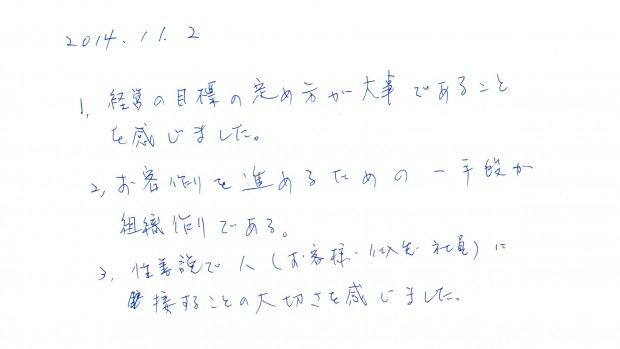 2014.11.2
1, 経営の目標の定め方が大事であること
を感じました。
2, お客作りを進めるための一手段が
組織作りである。
3, 性善説で人(お客様・仕入先・社員)に
接することの大切さを感じました。